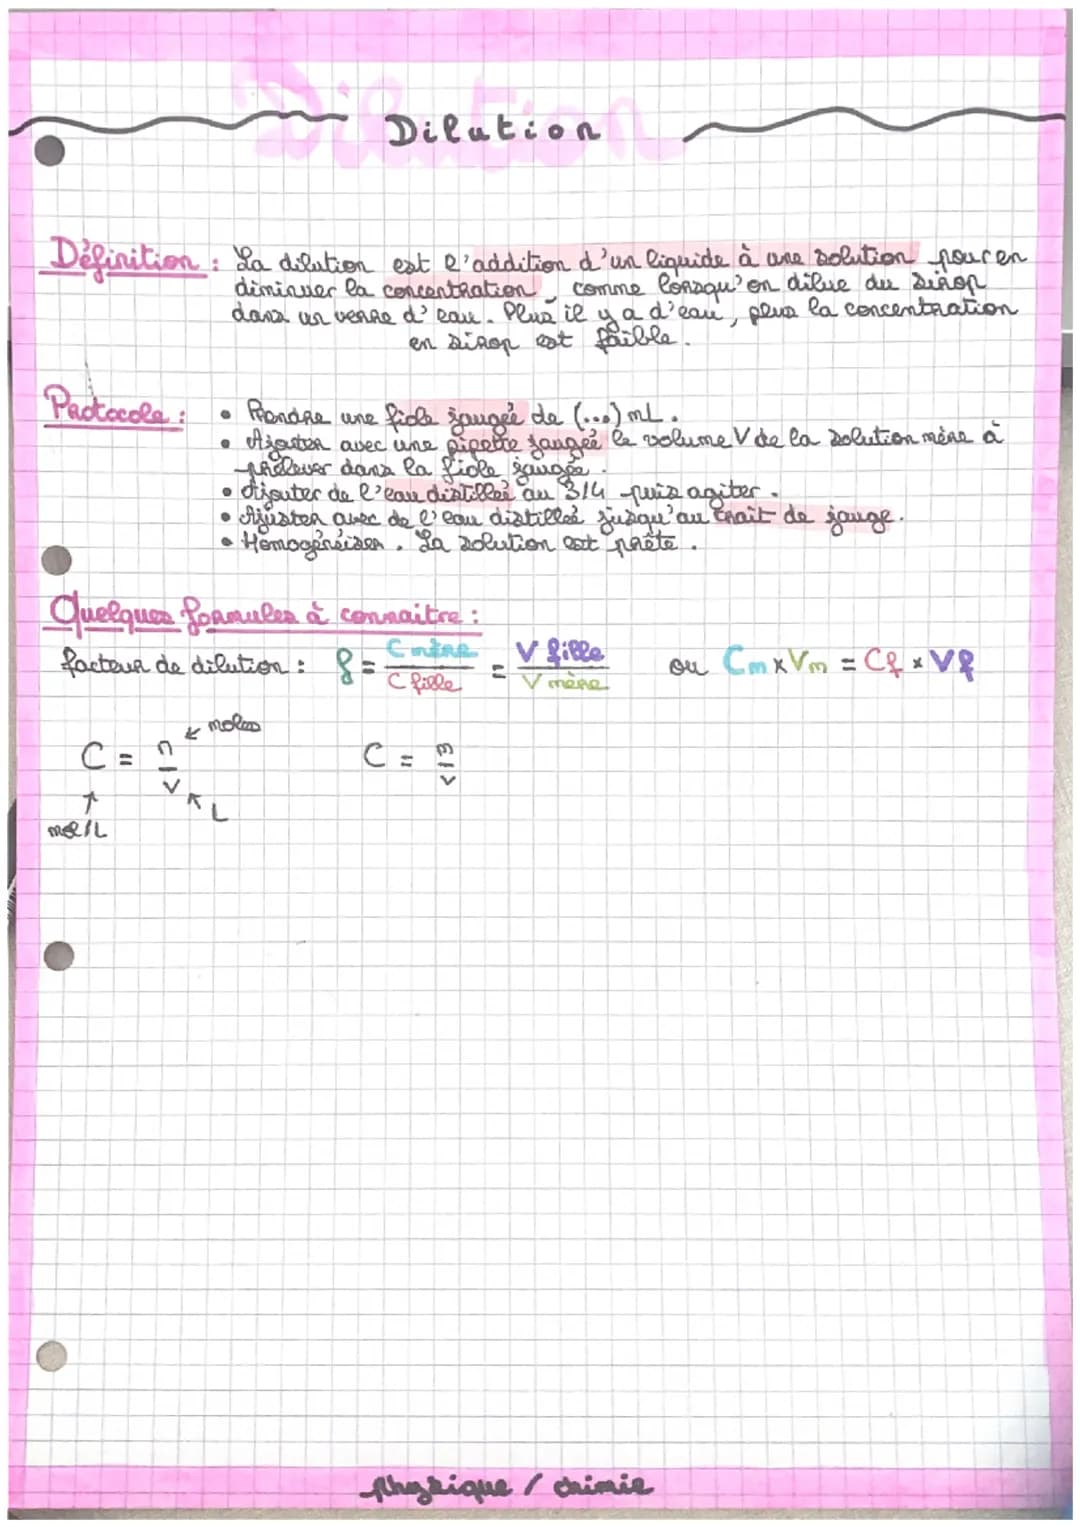 Dilution
Définition : La dilution est l'addition d'un liquide à une solution pour en
diminuer la concentration, comme lorsqu'on dilue du sirop
dans un verre d'eau. Plus il y a d'eau, plus la concentration
en sirop est faible.
Protocole :
• Prendre une fiole jaugée de (...) mL.
• Ajouter avec une pipette jaugée le volume V de la solution mère à
prélever dans la fiole jaugée.
• Ajouter de l'eau distillée au 3/4 puis agiter.
• Ajuster avec de l'eau distillée jusqu'au trait de jauge.
• Homogénéiser. La solution est prête.
Quelques formules à connaitre :
facteur de dilution : f = C mère / C fille = V fille / V mère ou Cm x Vm = Cf x Vf
C = n / V ← moles
↑ mol/L ↖ L
C = m / V
physique / chimie